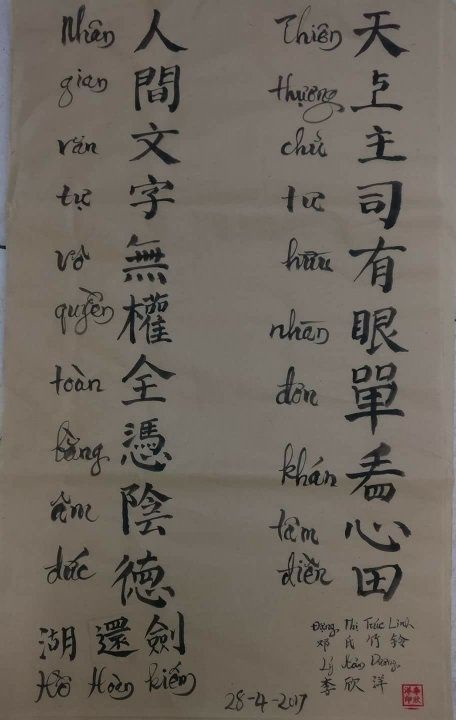 天上主司有眼單看心田
Thiên thượng chủ tư hữu nhãn đơn khán tâm điền
人間文字無權全憑陰德
Nhân gian văn tự vô quyền toàn bằng âm đức
湖還劍
Hồ Hoàn kiếm
28-4-2017
Đặng Thị Trúc Linh
邓氏竹铃
Lý Hân Dương
李欣洋